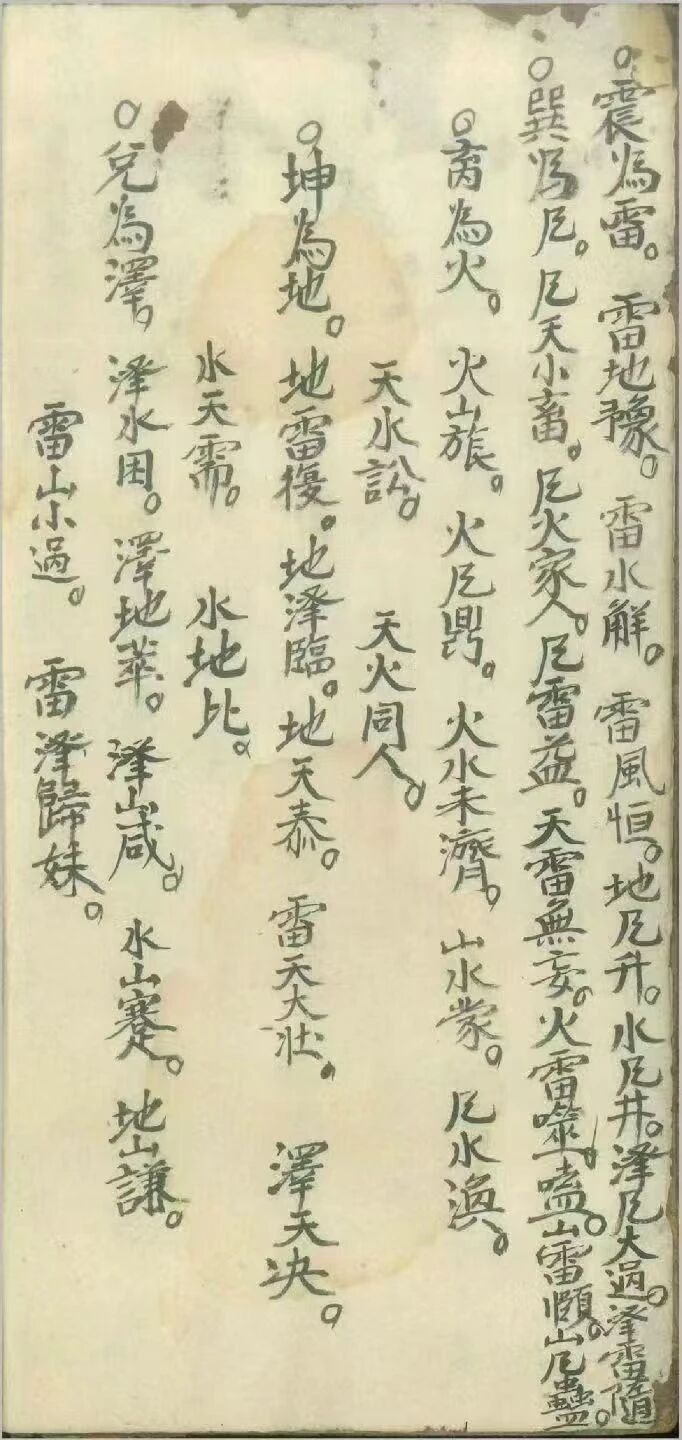 ○震為雷。雷地豫。雷水解。雷風恒。地凨升。水凨井。泽凨大過。泽雷隨。
○巽為凨。凨天小畜。凨火家人。凨雷益。天雷無妄。火雷噬嗑。山雷頤。山凨蠱。
○离為火。火山旅。火凨鼎。火水未濟。山水蒙。凨水渙。
天水訟。天火同人。
○坤為地。地雷復。地泽臨。地天泰。雷天大壮。澤天决。
水天需。水地比。
○兌為澤。泽水困。澤地萃。泽山咸。水山蹇。地山謙。
雷山小過。雷泽歸妹。